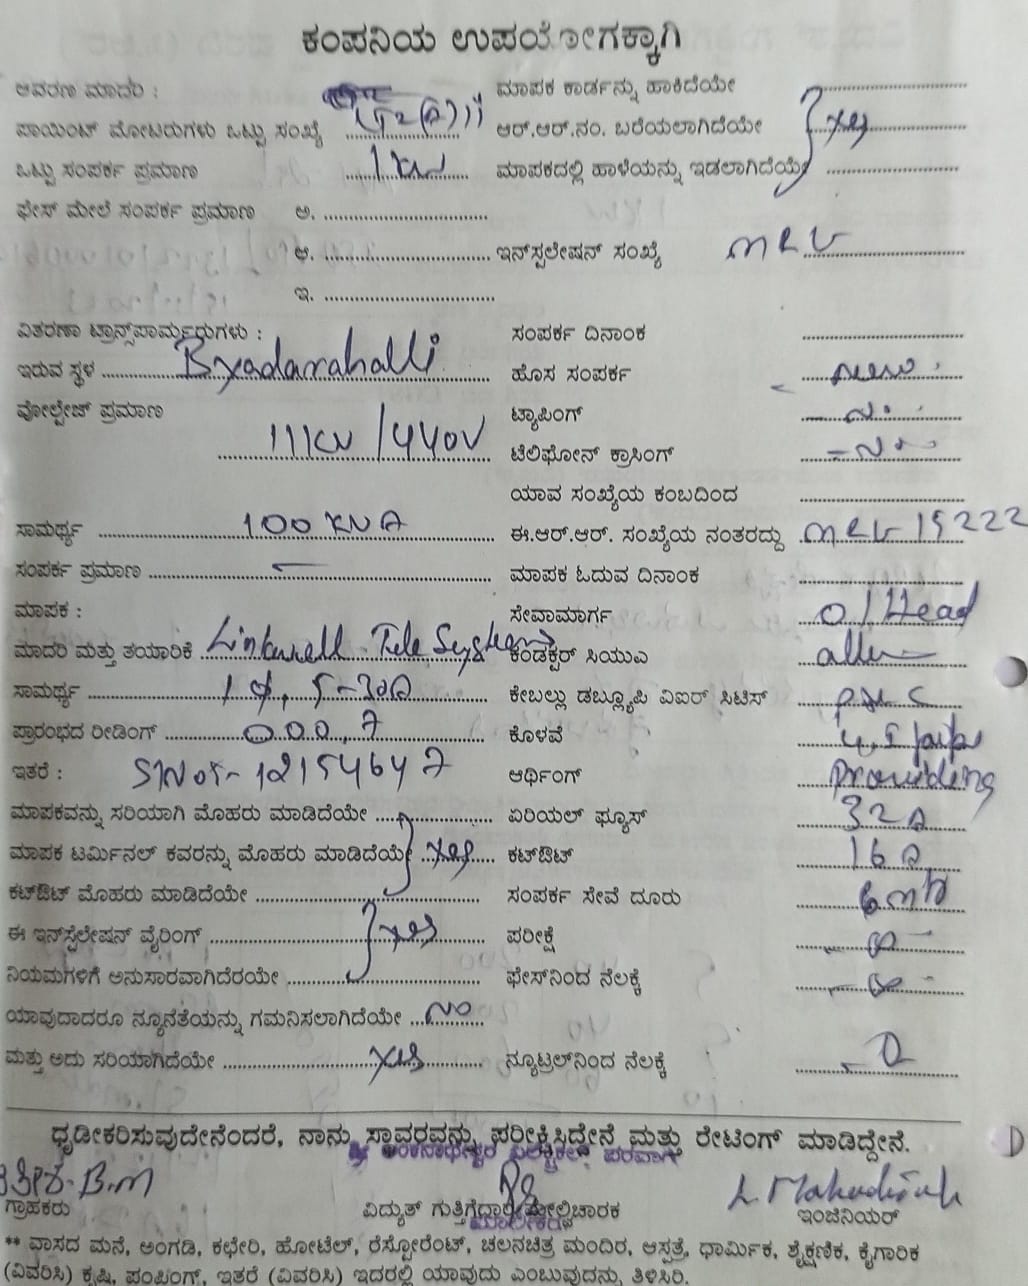 ಕಂಪನಿಯ ಉಪಯೋಗಕ್ಕಾಗಿ
ಆವರಣ ಮಾದರಿ : ಮಾಪಕ ಕಾರ್ಡನ್ನು ಹಾಕಿದೆಯೇ
ಪಾಯಿಂಟ್ ಮೋಟರುಗಳು ಒಟ್ಟು ಸಂಖ್ಯೆ ಆರ್.ಆರ್.ನಂ. ಬರೆಯಲಾಗಿದೆಯೇ yes
ಒಟ್ಟು ಸಂಪರ್ಕ ಪ್ರಮಾಣ 1 KW ಮಾಪಕದಲ್ಲಿ ಹಾಳೆಯನ್ನು ಇಡಲಾಗಿದೆಯೇ
ಫೇಸ್ ಮೇಲೆ ಸಂಪರ್ಕ ಪ್ರಮಾಣ ಅ.
ಆ. ಇನ್‌ಸ್ಟಲೇಷನ್ ಸಂಖ್ಯೆ MRL
ಇ.
ವಿತರಣಾ ಟ್ರಾನ್ಸ್‌ಪಾರ್ಮರುಗಳು : ಸಂಪರ್ಕ ದಿನಾಂಕ
ಇರುವ ಸ್ಥಳ Byadarahalli ಹೊಸ ಸಂಪರ್ಕ new
ವೋಲ್ಟೇಜ್ ಪ್ರಮಾಣ 11KV/440V ಟ್ಯಾಪಿಂಗ್
ಟೆಲಿಫೋನ್ ಕ್ರಾಸಿಂಗ್
ಯಾವ ಸಂಖ್ಯೆಯ ಕಂಬದಿಂದ
ಸಾಮರ್ಥ್ಯ 100 KVA ಈ.ಆರ್.ಆರ್. ಸಂಖ್ಯೆಯ ನಂತರದ್ದು MRL 15222
ಸಂಪರ್ಕ ಪ್ರಮಾಣ ಮಾಪಕ ಓದುವ ದಿನಾಂಕ
ಮಾಪಕ : ಸೇವಾಮಾರ್ಗ O/Head
ಮಾದರಿ ಮತ್ತು ತಯಾರಿಕೆ Linkwell Tele Systems ಕಂಡಕ್ಟರ್ ಸಿಯುಎ
ಸಾಮರ್ಥ್ಯ 1 ϕ, 5-30A ಕೇಬಲ್ಲು ಡಬ್ಲ್ಯೂಪಿ ವಿಐರ್ ಸಿಟಿಸ್
ಪ್ರಾರಂಭದ ರೀಡಿಂಗ್ 000.7 ಕೊಳವೆ
ಇತರೆ : SNO5-12154647 ಆರ್ಥಿಂಗ್ Providing
ಮಾಪಕವನ್ನು ಸರಿಯಾಗಿ ಮೊಹರು ಮಾಡಿದೆಯೇ ಏರಿಯಲ್ ಫ್ಯೂಸ್ 32A
ಮಾಪಕ ಟರ್ಮಿನಲ್ ಕವರನ್ನು ಮೊಹರು ಮಾಡಿದೆಯೇ yes ಕಟ್‌ಔಟ್ 16A
ಕಟ್‌ಔಟ್ ಮೊಹರು ಮಾಡಿದೆಯೇ ಸಂಪರ್ಕ ಸೇವೆ ದೂರು
ಈ ಇನ್‌ಸ್ಟೆಲೇಷನ್ ವೈರಿಂಗ್ yes ಪರೀಕ್ಷೆ
ನಿಯಮಗಳಿಗೆ ಅನುಸಾರವಾಗಿದೆರಯೇ ಫೇಸ್‌ನಿಂದ ನೆಲಕ್ಕೆ
ಯಾವುದಾದರೂ ನ್ಯೂನತೆಯನ್ನು ಗಮನಿಸಲಾಗಿದೆಯೇ No
ಮತ್ತು ಅದು ಸರಿಯಾಗಿದೆಯೇ yes ನ್ಯೂಟ್ರಲ್‌ನಿಂದ ನೆಲಕ್ಕೆ
ಧೃಡೀಕರಿಸುವುದೇನೆಂದರೆ, ನಾನು ಸ್ಥಾವರವನ್ನು ಪರೀಕ್ಷಿಸಿದ್ದೇನೆ ಮತ್ತು ರೇಟಿಂಗ್ ಮಾಡಿದ್ದೇನೆ.
B.M L. Mahadevaiah
ಗ್ರಾಹಕರು ವಿದ್ಯುತ್ ಗುತ್ತಿಗೆದಾರ ಮೇಲ್ವಿಚಾರಕ ಇಂಜಿನಿಯರ್
** ವಾಸದ ಮನೆ, ಅಂಗಡಿ, ಕಛೇರಿ, ಹೋಟೆಲ್, ರೆಸ್ಟೋರೆಂಟ್, ಚಲನಚಿತ್ರ ಮಂದಿರ, ಆಸ್ಪತ್ರೆ, ಧಾರ್ಮಿಕ, ಶೈಕ್ಷಣಿಕ, ಕೈಗಾರಿಕ
(ವಿವರಿಸಿ) ಕೃಷಿ, ಪಂಪಿಂಗ್, ಇತರೆ (ವಿವರಿಸಿ) ಇದರಲ್ಲಿ ಯಾವುದು ಎಂಬುವುದನ್ನು ತಿಳಿಸಿರಿ.